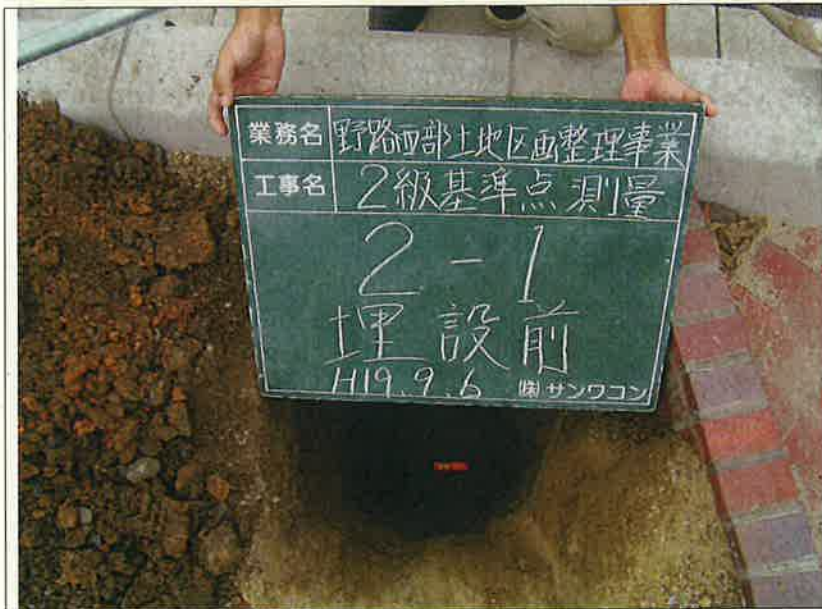 業務名 野路西部土地区画整理事業
工事名 2級基準点測量
2-1
埋設前
H19.9.6 ㈱サンワコン